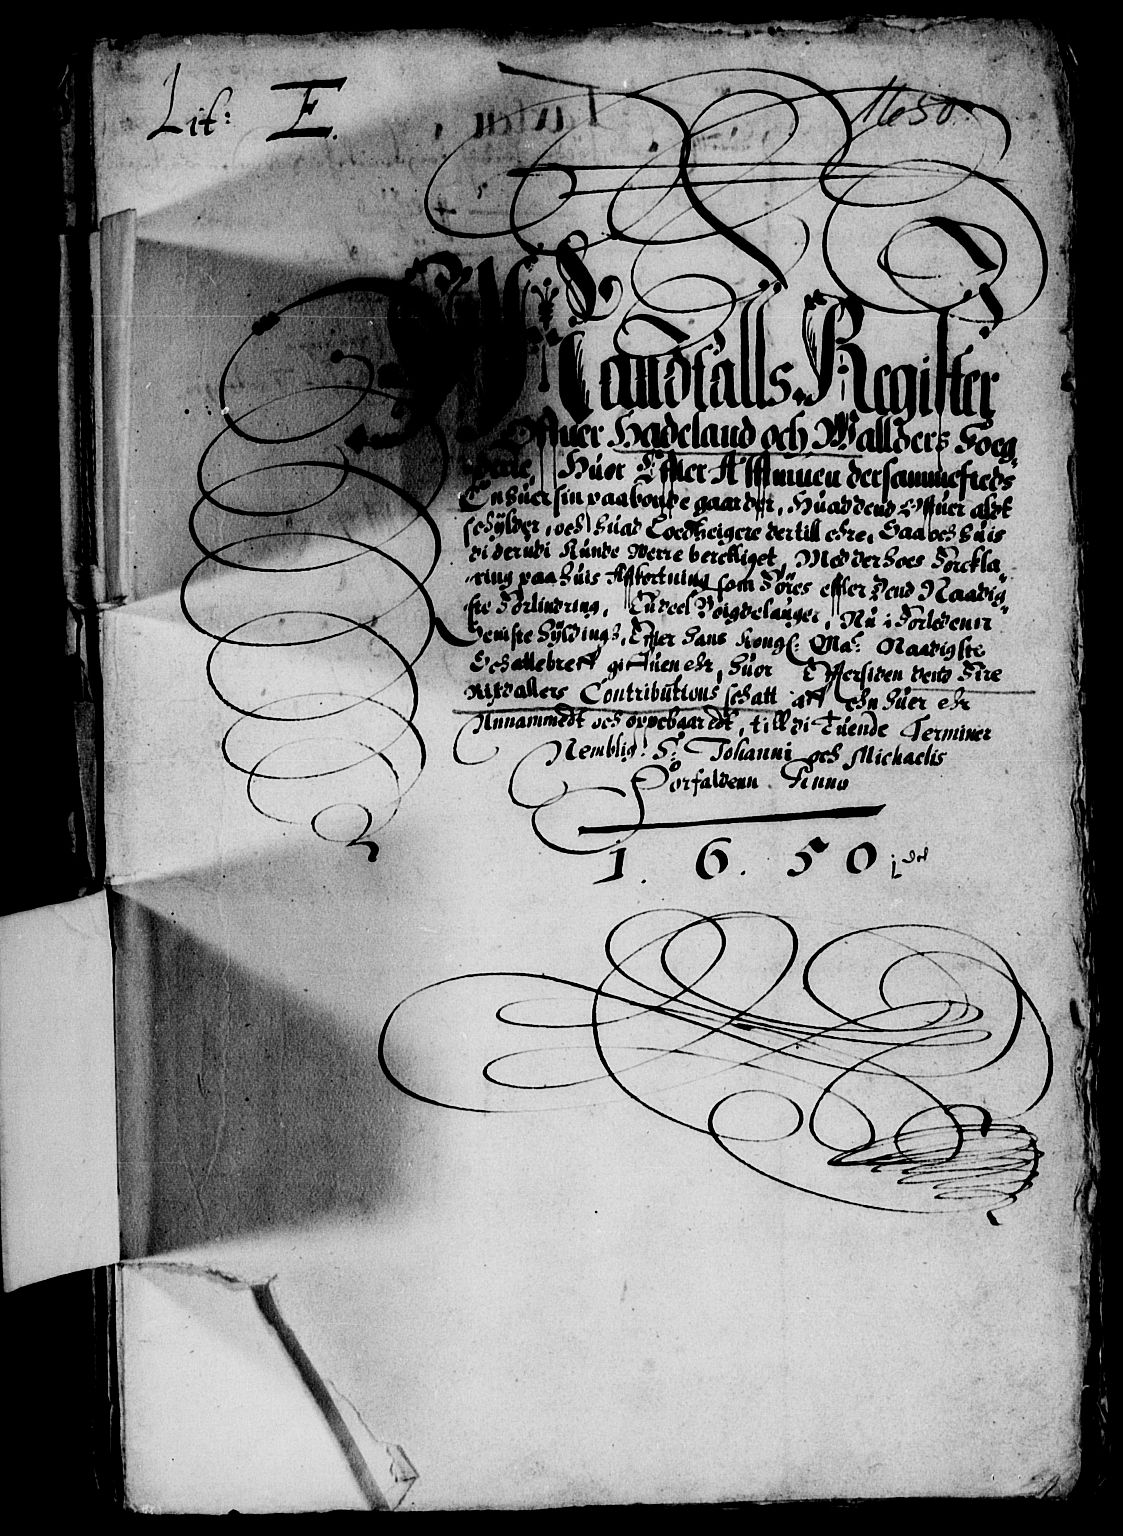 Lit: E.
1650.
Mandtalls Register
Offuer Hadeland och Wallders Foeg-
derie, Huor Effter Allmuen dersammesteds
En huer sin paaboende gaarder, Huad dend Offuer aldt
schÿlder, och huad Loedtzeigere dertill ehre, Saa och huis
di derudi Kunde Werre berettiget, Med der hoes Forckla-
ring paa huis Affkortning som Føres effter dend Naadig-
ste Forlindring, Endeel Føigdelauger, Nu i Forledenn
Seniste hÿldings, Effter hans Kongl: Ma: Naadigste
Schattebreff giffuen ehr, huor Effter siden dend Fire
Rixdallers Contributions schatt aff ehn huer ehr
Annammedt och oppebaaredt, till di Tuende Terminer
Nemblig: S: Johanni och Michaelis
Forfaldenn Anno
1.6.50